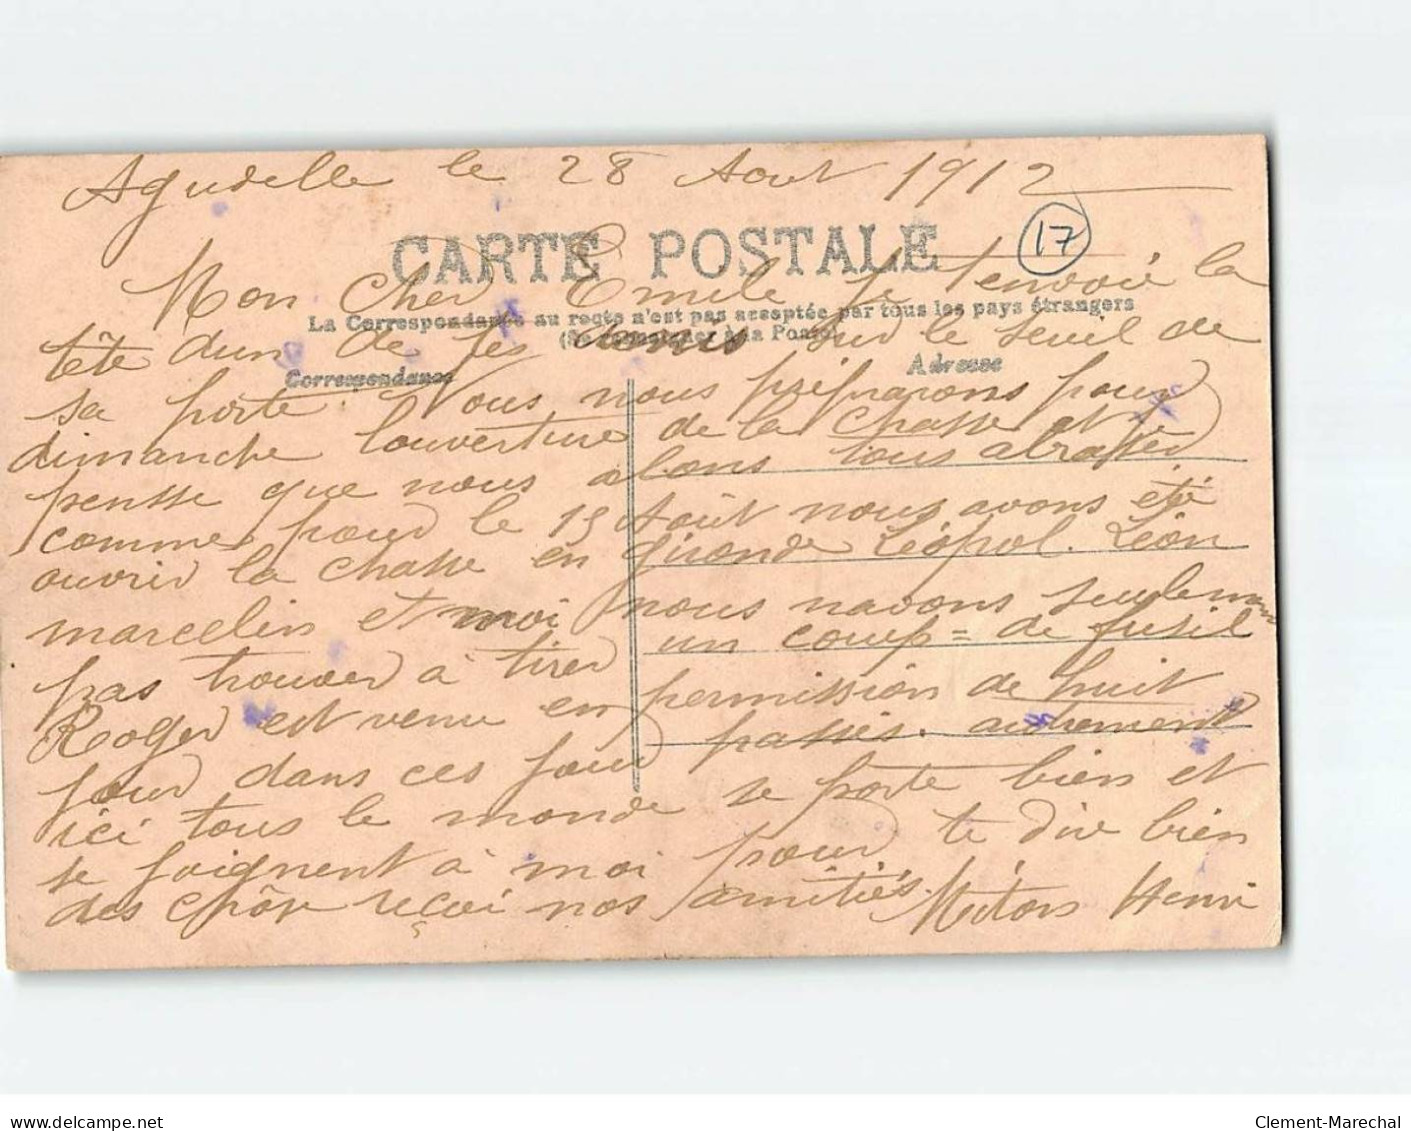 Agudelle le 28 Aout 1912
17
CARTE POSTALE
Mon Cher Emile je t'envoie la
La Correspondance au recto n'est pas acceptée par tous les pays étrangers
(Se renseigner à la Poste)
tête dun de tes amis sur le seuil de
Correspondance
Adresse
sa porte. Nous nous préparons pour
dimanche louverture de la chasse et je
pensse que nous alons tous
comme pour le 15 Août nous avons été
ouvrir la chasse en gironde Léopol. Léon
marcelin et moi nous navons seulement
pas trouver à tirer un coup = de fusil
Roger est venu en permission de huit
jour dans ces jour passés. autrement
ici tous le monde se porte bien et
se joignent à moi pour te dir bien
des chôse reçoi nos amitiés. Henri
Clement-Marechal
delcampe.net